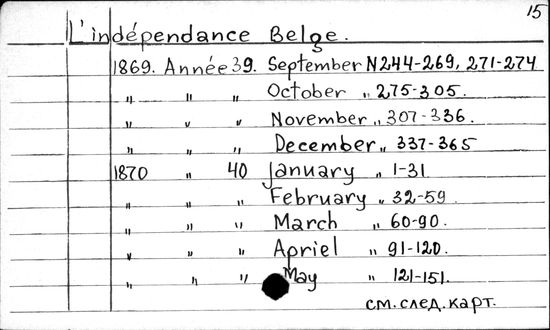 15
L'indépendance Belge.
1869. Année 39. September N244-269, 271-274
„ „ „ October „ 275-305.
„ „ „ November „ 307-336.
„ „ „ December „ 337-365
1870 „ 40 January „ 1-31.
„ „ „ February „ 32-59.
„ „ „ March „ 60-90.
„ „ „ Apriel „ 91-120.
„ „ „ May „ 121-151.
см. след. карт.